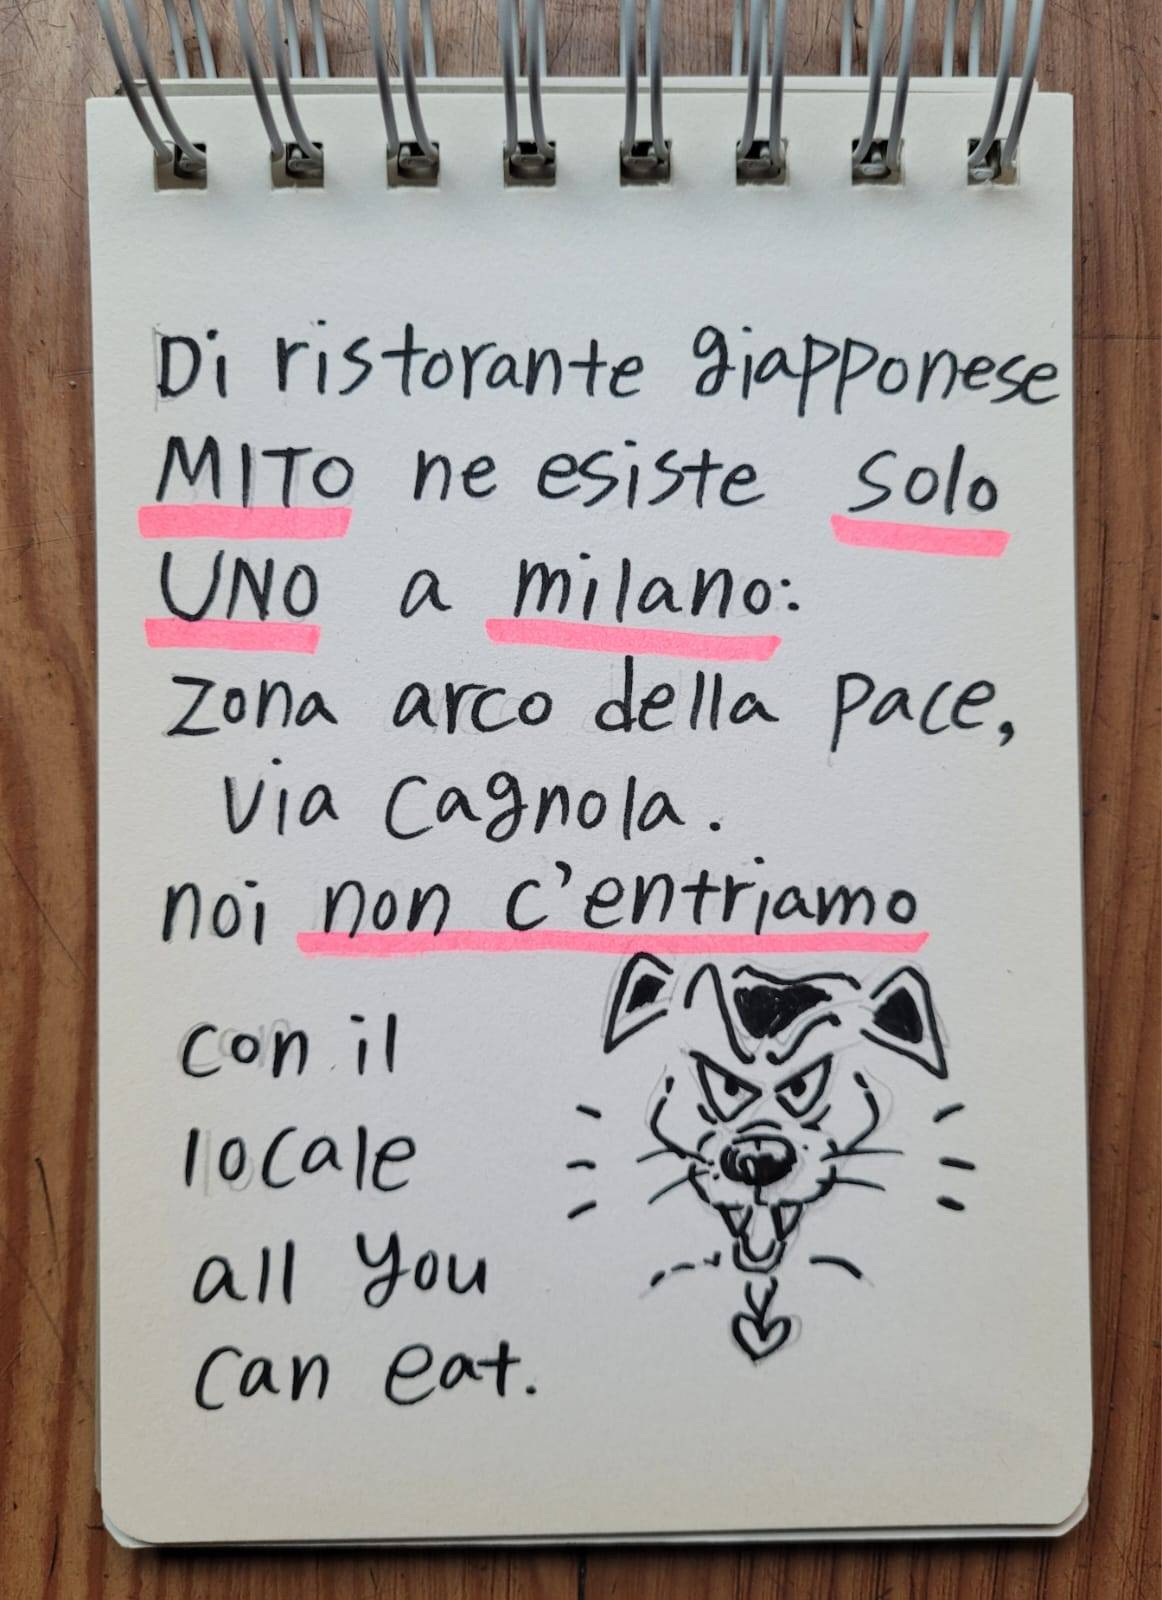 Di ristorante giapponese
MITO ne esiste solo
UNO a milano:
zona arco della pace,
via cagnola.
noi non c'entriamo
con il
locale
all you
can eat.